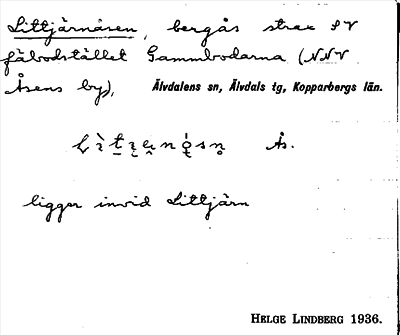 Littjärnåsen, bergås strax SV
fäbodstället Gammbodarna (NNV
Åsens by), Älvdalens sn, Älvdals tg, Kopparbergs län.
Ås.
ligger invid Littjärn
HELGE LINDBERG 1936.